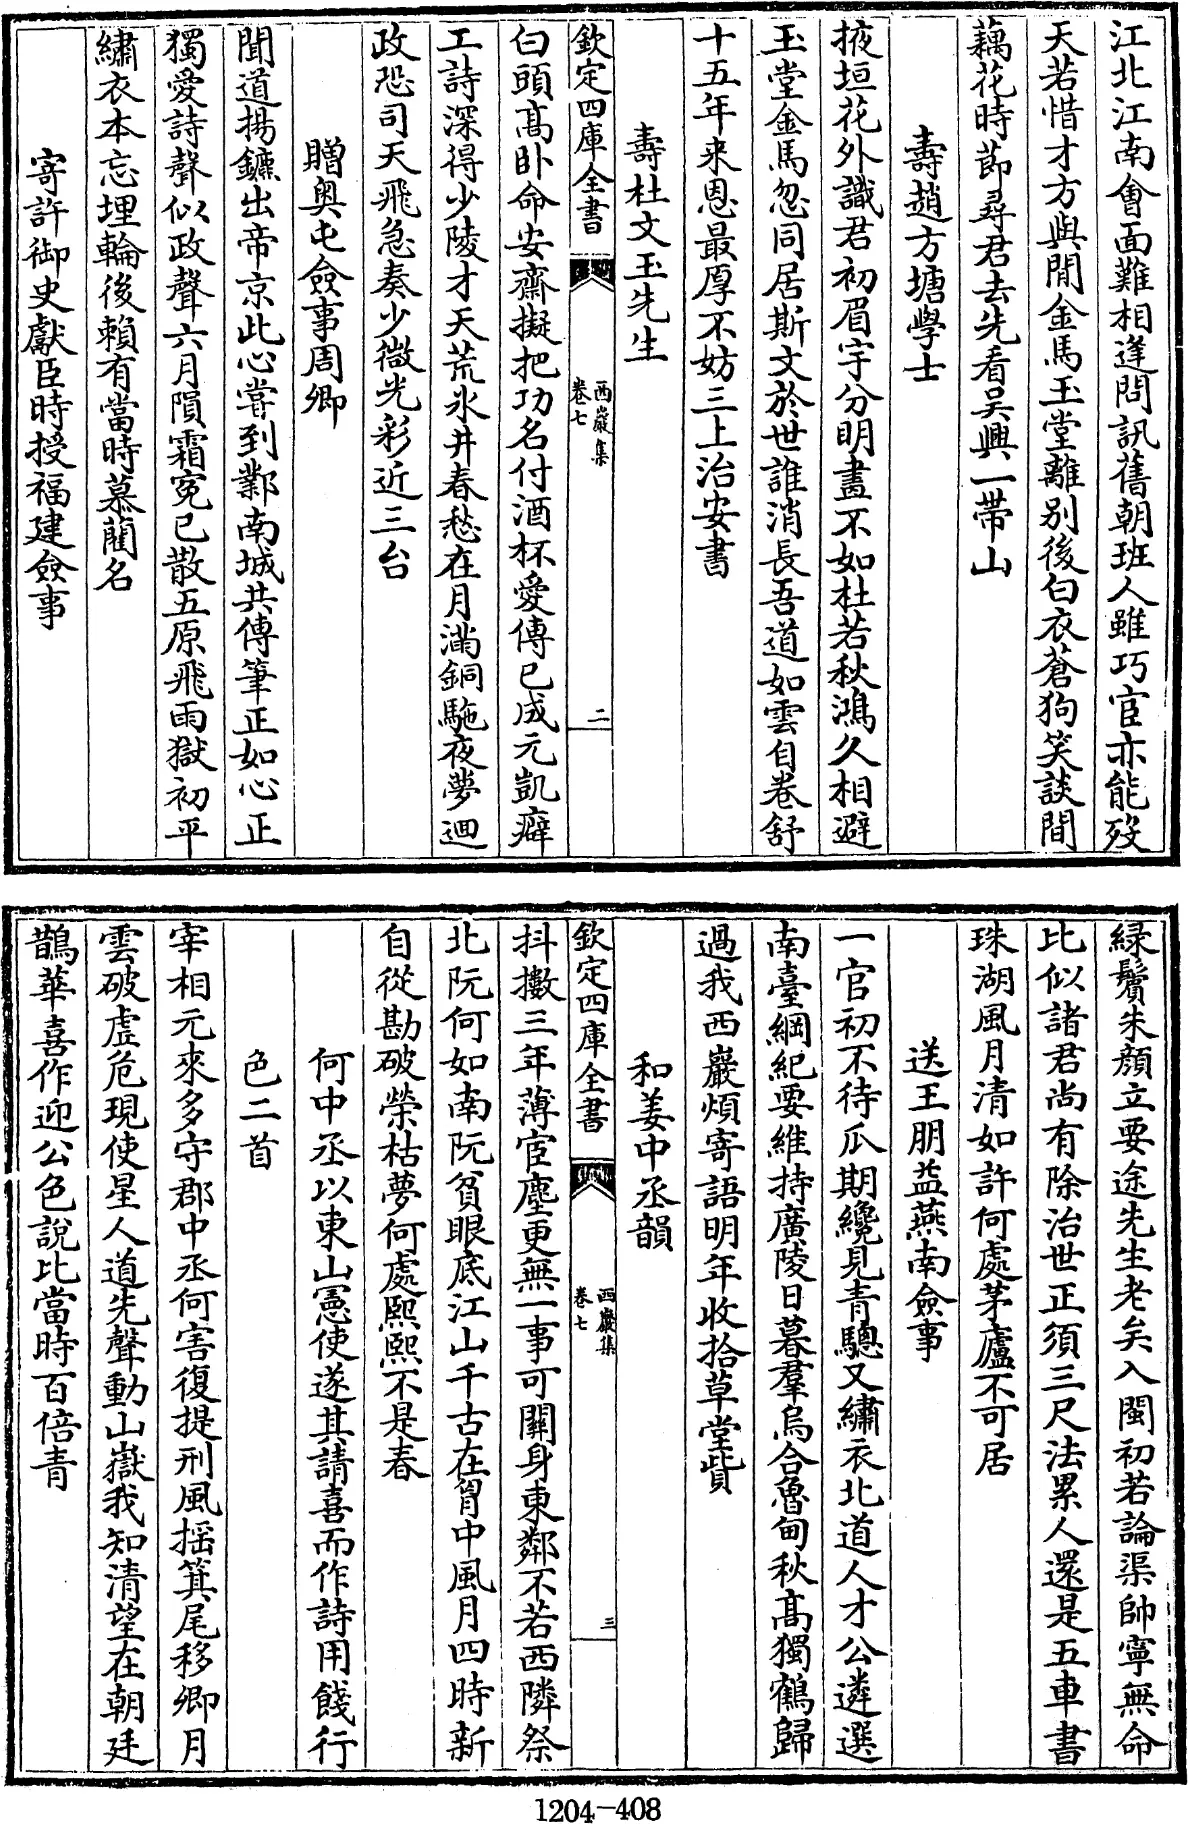 江北江南會面難相逢問訊舊朝班人雖巧宦亦能歿
天若惜才方與閒金馬玉堂離別後白衣蒼狗笑談間
藕花時節尋君去先看吳興一帶山
壽趙方塘學士
掖垣花外識君初眉宇分明畫不如杜若秋鴻久相避
玉堂金馬忽同居斯文於世誰消長吾道如雲自卷舒
十五年来恩最厚不妨三上治安書
壽杜文玉先生
欽定四庫全書
西巖集
卷七
二
白頭高卧命安齋擬把功名付酒杯愛傳已成元凱癖
工詩深得少陵才天荒氷井春愁在月滿銅駞夜夢迴
政恐司天飛急奏少微光彩近三台
贈奧屯僉事周卿
聞道揚鑣出帝京此心嘗到鄴南城共傳筆正如心正
獨愛詩聲似政聲六月隕霜冤已散五原飛雨獄初平
繡衣本忘埋輪後賴有當時慕藺名
寄許御史獻臣時授福建僉事
緑鬢朱顔立要途先生老矣入閩初若論渠帥寧無命
比似諸君尚有除治世正須三尺法累人還是五車書
珠湖風月清如許何處茅廬不可居
送王朋益燕南僉事
一官初不待瓜期纔見青驄又繡衣北道人才公遴選
南臺綱紀要維持廣陵日暮羣烏合魯甸秋高獨鶴歸
過我西巖煩寄語明年收拾草堂貲
和姜中丞韻
欽定四庫全書
西巖集
卷七
三
抖擻三年薄宦塵更無一事可關身東鄰不若西隣祭
北阮何如南阮貧眼底江山千古在胷中風月四時新
自從勘破榮枯夢何處熙熙不是春
何中丞以東山憲使遂其請喜而作詩用餞行
色二首
宰相元來多守郡中丞何害復提刑風揺箕尾移卿月
雲破虚危現使星人道先聲動山嶽我知清望在朝廷
鵲華喜作迎公色說比當時百倍青
1204-408